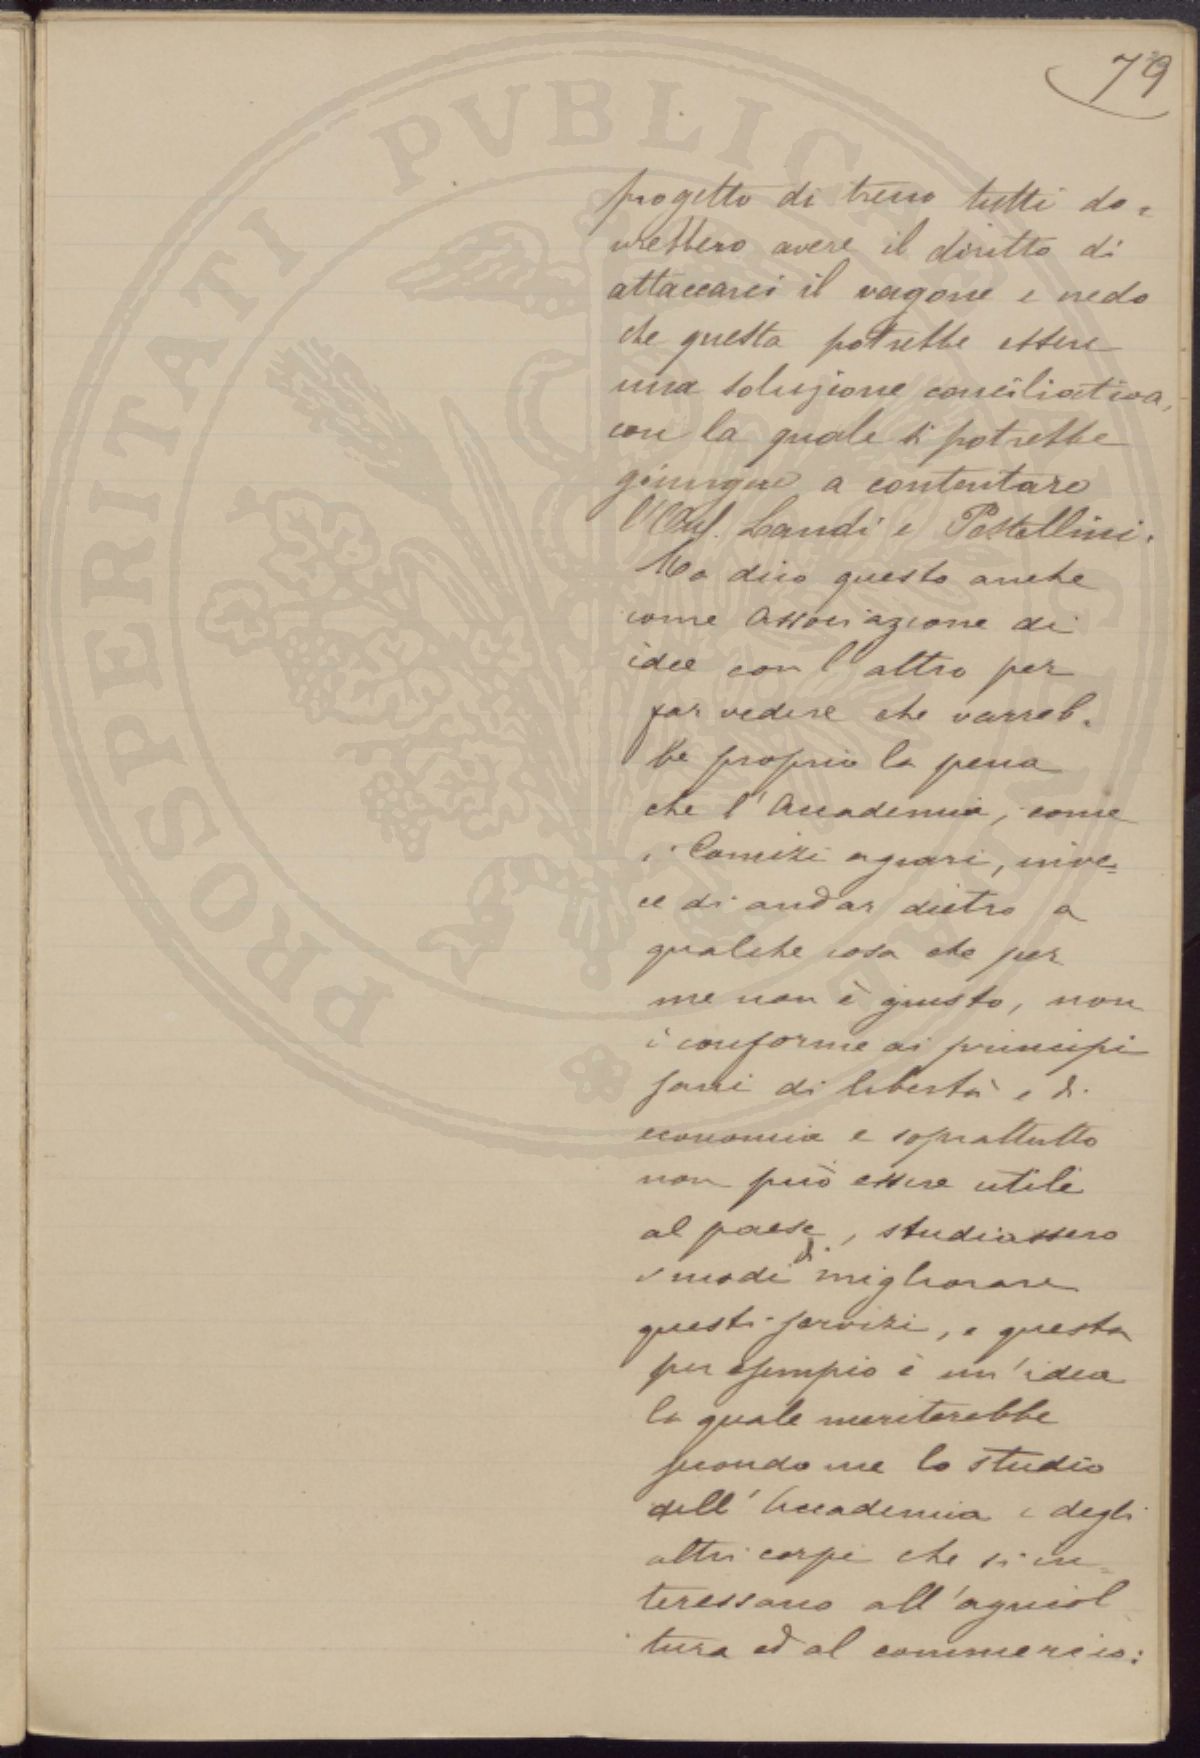 79
progetto di treno tutti do=
vrebbero avere il diritto di
attaccarci il vagone e credo
che questa potrebbe essere
una soluzione conciliativa,
con la quale si potrebbe
giungere a contentare
l'On. Landi e Pestellini.
Ma dico questo anche
come associazione di
idee con l'altro per
far vedere che varreb=
be proprio la pena
che l'Accademia, come
i Comizi agrari, inve=
ce di andar dietro a
qualche cosa che per
me non è giusto, non
è conforme ai principi
sani di libertà e di
economia e soprattutto
non può essere utile
al paese, studiassero
i modi di migliorare
questi servizi, e questa
per esempio è un'idea
la quale meriterebbe
secondo me lo studio
dell'Accademia e degli
altri corpi che si in=
teressano all'agricol
tura ed al commercio:
PROSPERITATI PVBLICAE